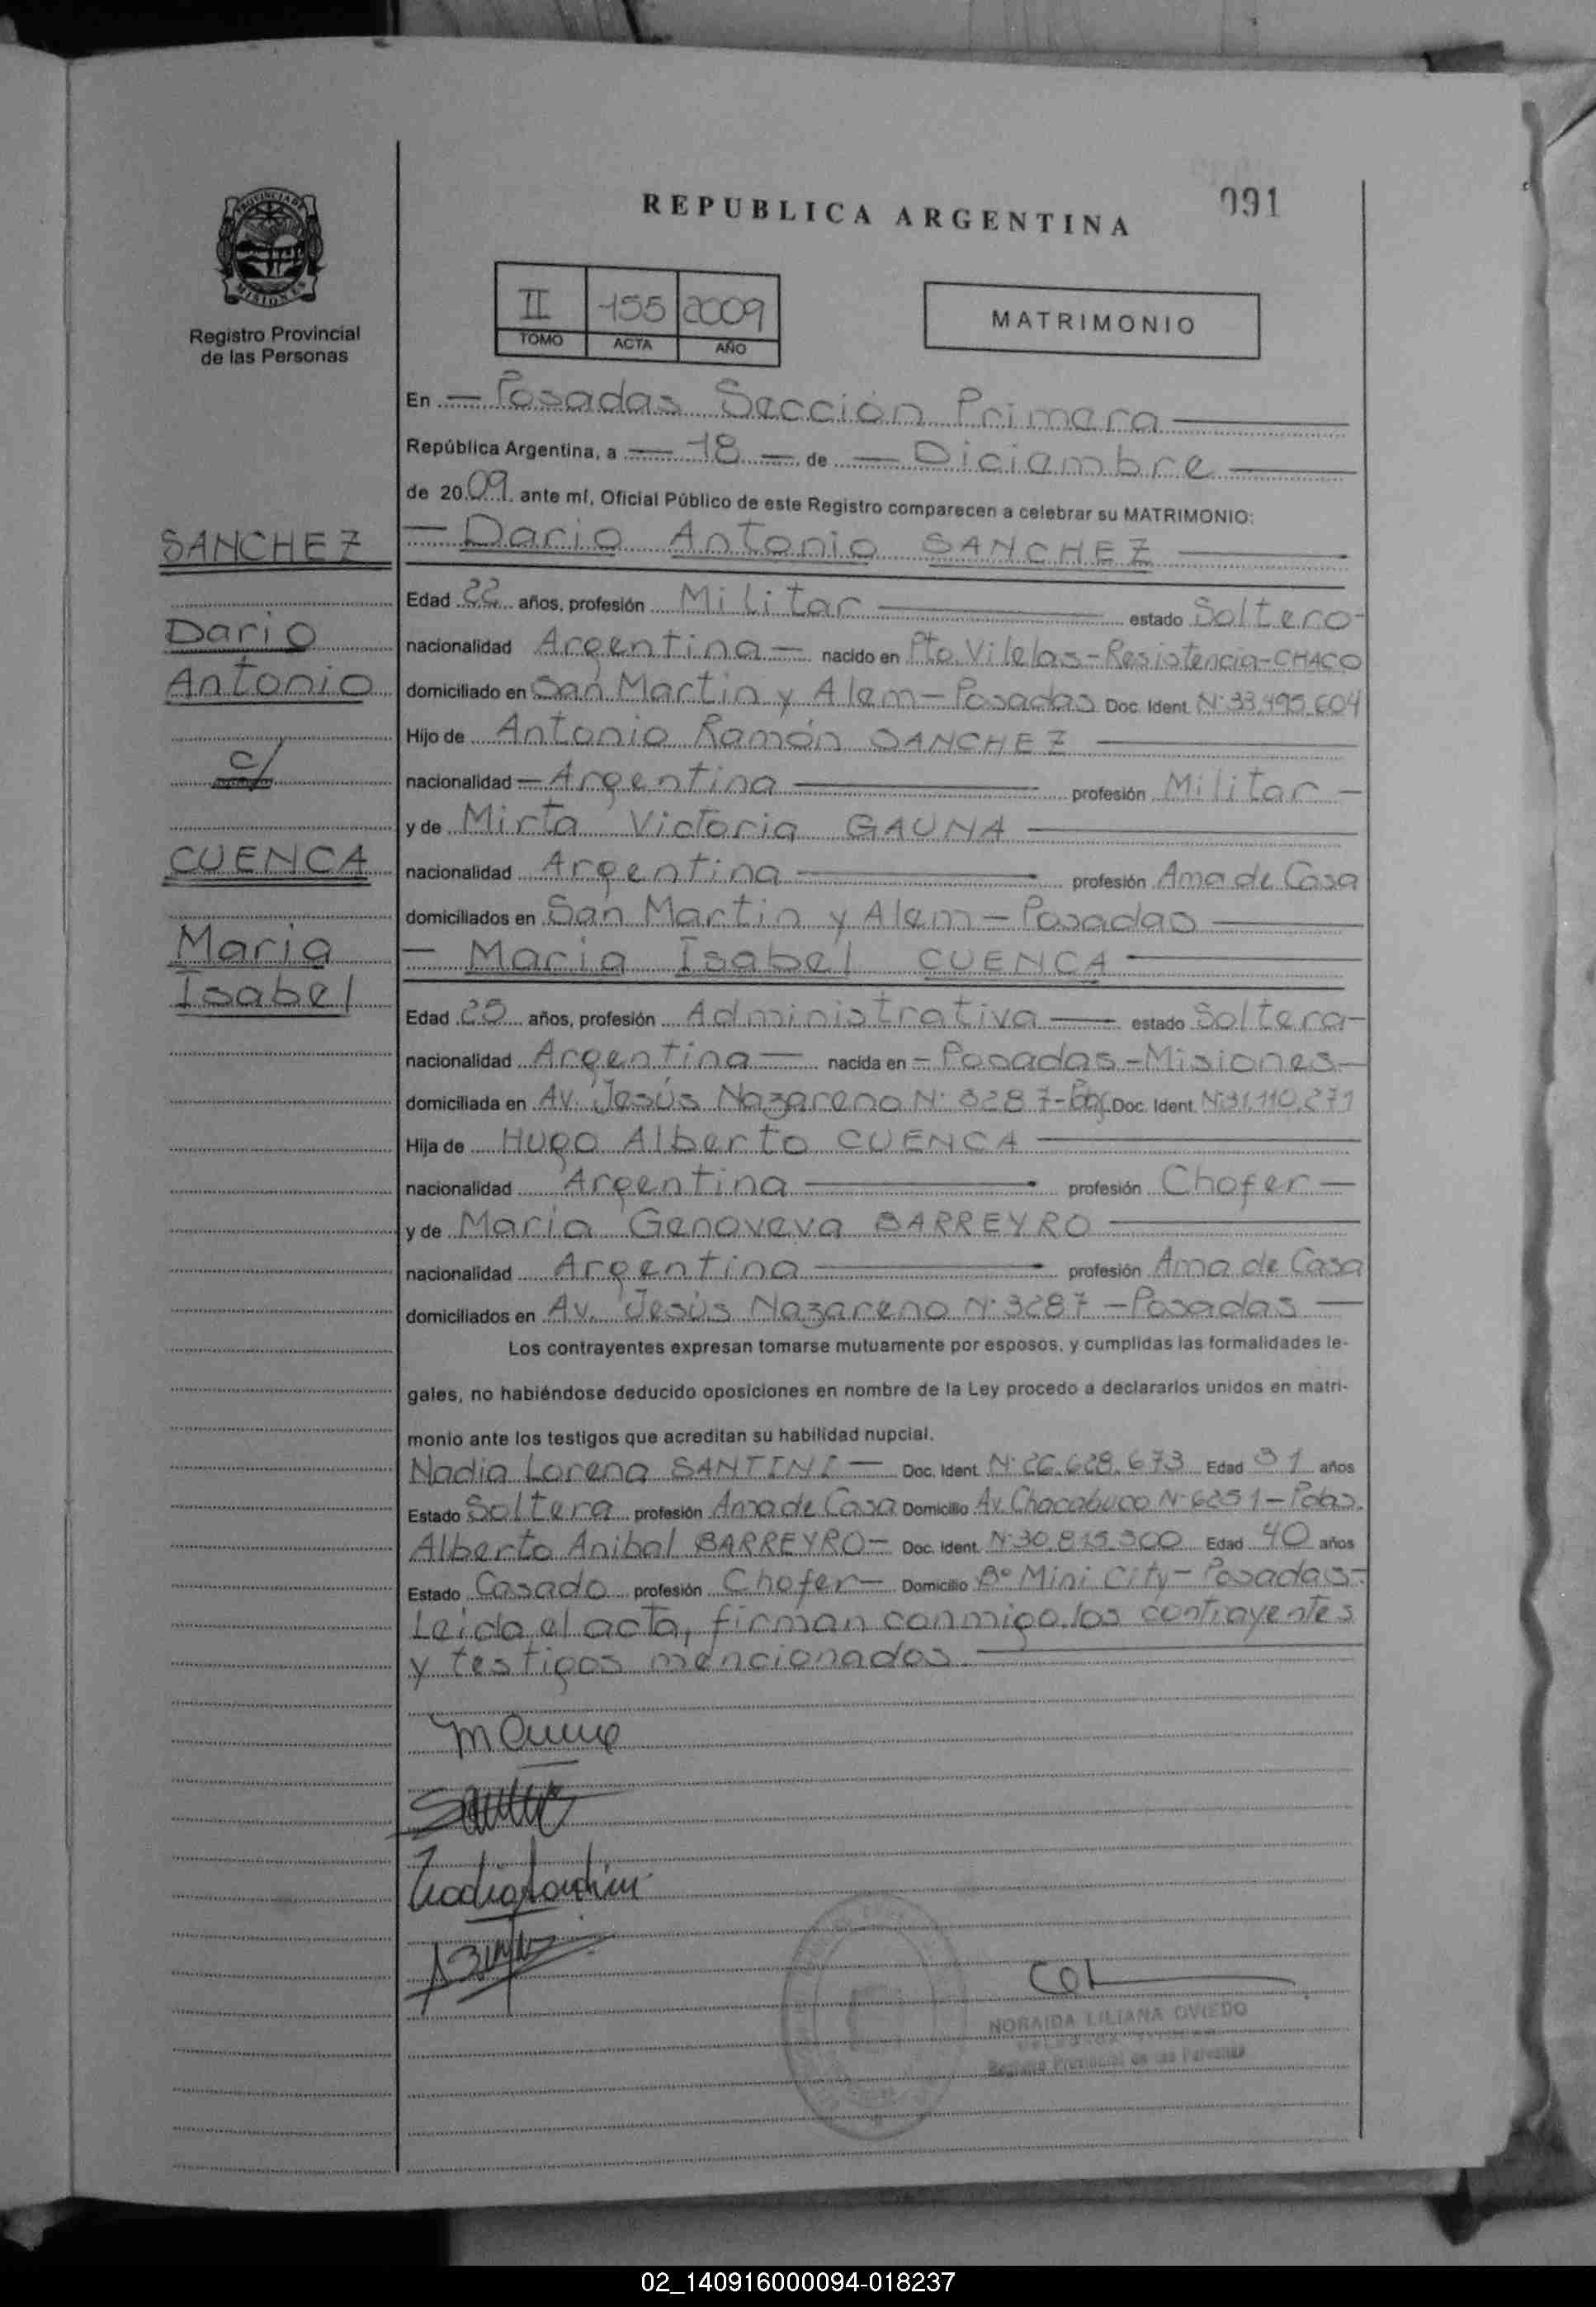 REPUBLICA ARGENTINA
091
PROVINCIA DE
MISIONES
Registro Provincial
de las Personas
II 155 2009
TOMO ACTA AÑO
MATRIMONIO
En — Posadas Sección Primera —
República Argentina, a — 18 — de — Diciembre —
de 2009 ante mí, Oficial Público de este Registro comparecen a celebrar su MATRIMONIO:
SANCHEZ
Dario
Antonio
c/
CUENCA
Maria
Isabel
— Dario Antonio SANCHEZ —
Edad 22 años, profesión Militar — estado Soltero-
nacionalidad Argentina — nacido en Pto. Vilelas-Resistencia-CHACO
domiciliado en San Martin y Alem-Posadas Doc. Ident. N° 33.495.604
Hijo de Antonio Ramón SANCHEZ —
nacionalidad — Argentina — profesión Militar -
y de Mirta Victoria GAUNA —
nacionalidad Argentina — profesión Ama de Casa
domiciliados en San Martin y Alem-Posadas —
— Maria Isabel CUENCA —
Edad 25 años, profesión Administrativa — estado Soltera-
nacionalidad Argentina — nacida en - Posadas-Misiones-
domiciliada en Av. Jesús Nazareno N° 3287- Doc. Ident. N° 31.110.271
Hija de Hugo Alberto CUENCA —
nacionalidad Argentina — profesión Chofer —
y de Maria Genoveva BARREYRO —
nacionalidad Argentina — profesión Ama de Casa
domiciliados en Av. Jesús Nazareno N° 3287 - Posadas —
Los contrayentes expresan tomarse mutuamente por esposos, y cumplidas las formalidades le-
gales, no habiéndose deducido oposiciones en nombre de la Ley procedo a declararlos unidos en matri-
monio ante los testigos que acreditan su habilidad nupcial.
Nadia Lorena SANTINI — Doc. Ident. N° 26.628.673 Edad 31 años
Estado Soltera profesión Ama de Casa Domicilio Av. Chacabuco N° 6251-Pdas.
Alberto Anibal BARREYRO- Doc. Ident. N° 30.815.300 Edad 40 años
Estado Casado profesión Chofer- Domicilio B° Mini City-Posadas-
Leida el acta, firman conmigo los contrayentes
y testigos mencionados —
NORAIDA LILIANA OVIEDO
Registro Provincial de las Personas
02_140916000094-018237